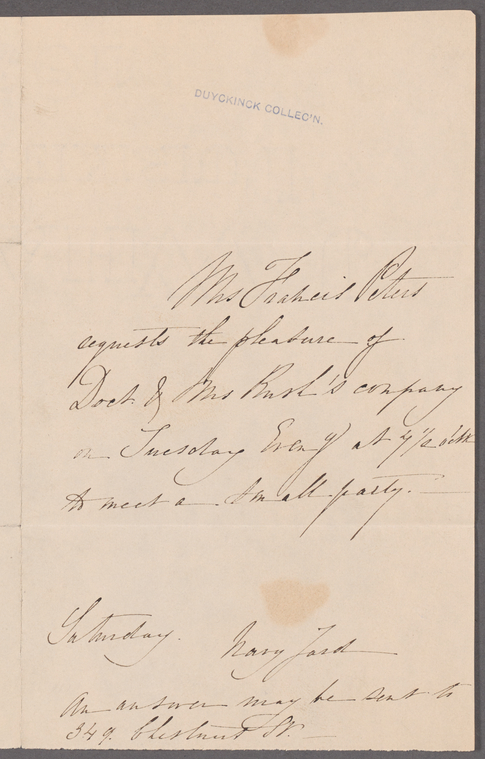 DUYCKINCK COLLEC'N.
Mrs Francis Peters
requests the pleasure of
Doct & Mrs Rush's company
on Tuesday Eveng at 7½ o'clk
to meet a small party.
Saturday.
Navy Yard
An answer may be sent to
349. Chestnut St.